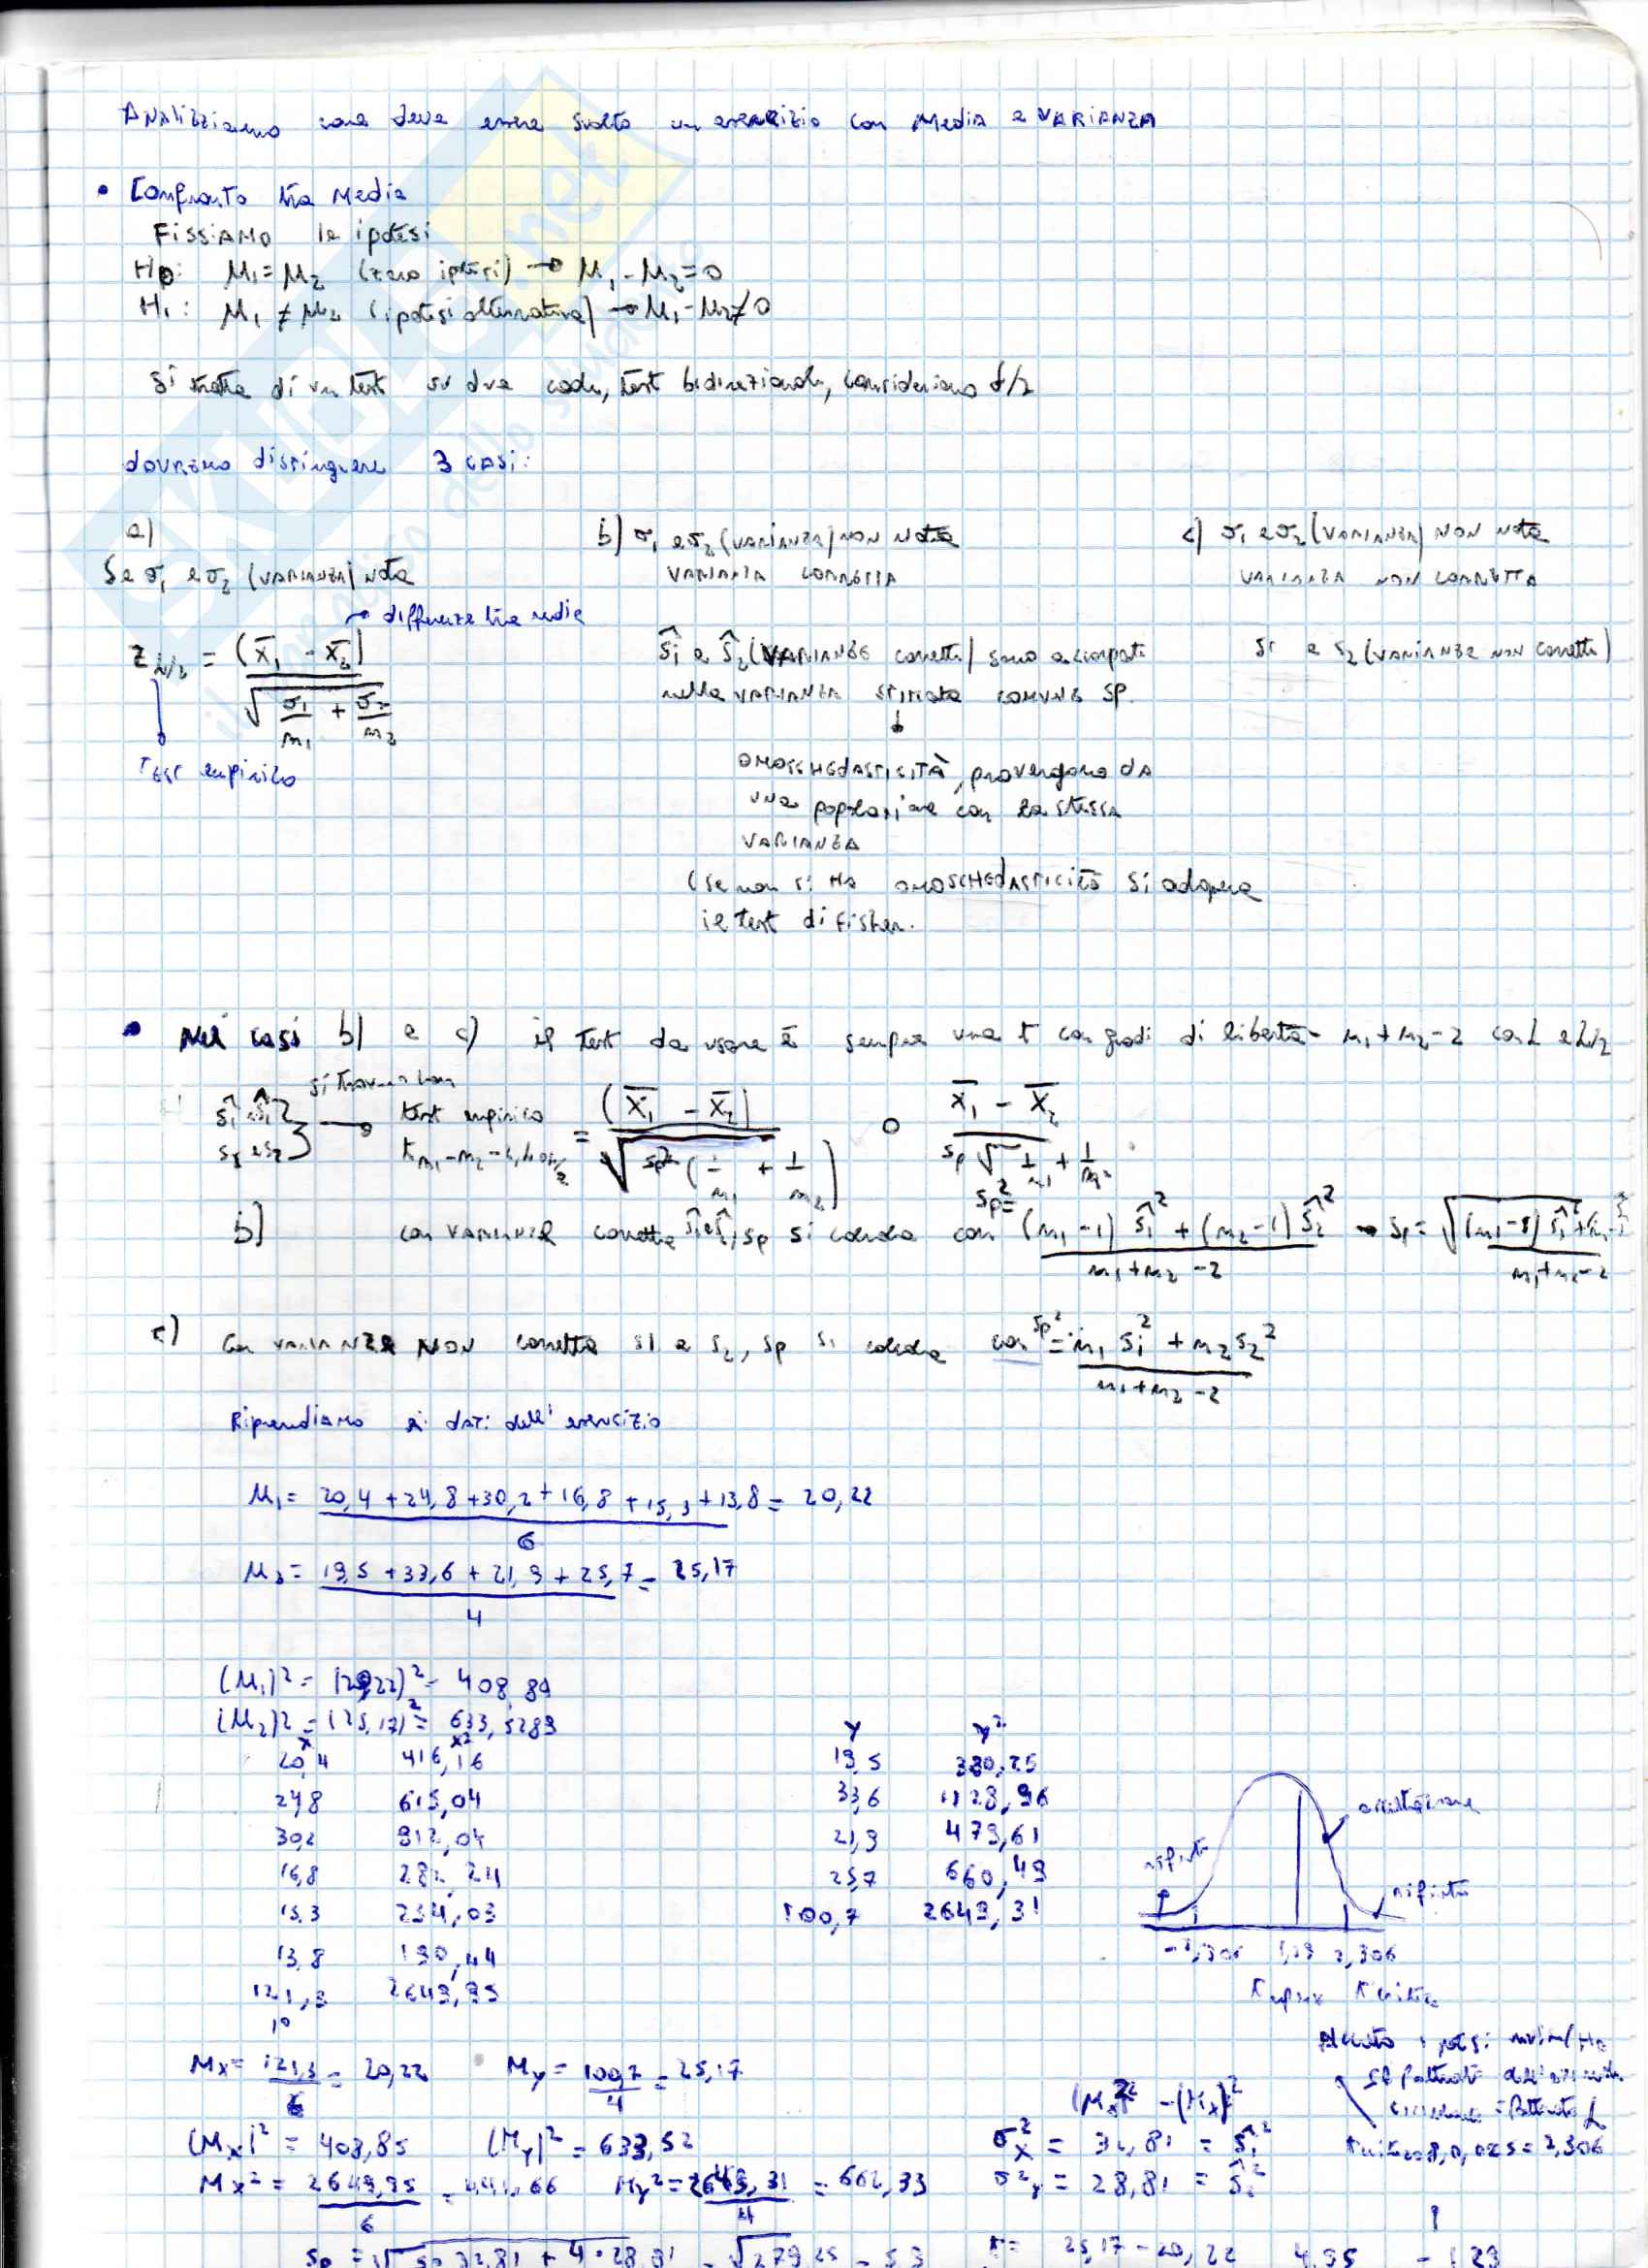 Analizziamo come deve essere svolto un esercizio con Media e VARIANZA
• Confronto tra Media
FISSIAMO le ipotesi
H0: M1 = M2 (zero ipotesi) → M1 - M2 = 0
H1: M1 ≠ M2 (ipotesi alternativa) → M1 - M2 ≠ 0
Si tratta di un test su due code, test bidirezionale, consideriamo α/2
dovremo distinguere 3 casi:
a)
Se σ1 e σ2 (VARIANZA) nota
→ differenza tra medie
Z α/2 = (X̄1 - X̄2) / √(σ1/m1 + σ2/m2)
Test empirico
b) σ1 e σ2 (VARIANZA) NON Nota
VARIANZA CORRETTA
ŝ1 e ŝ2 (VARIANZE corrette) sono accorpati
nella VARIANZA stimata COMUNE SP.
↓
OMOSCHEDASTICITÀ, provengono da
una popolazione con la stessa
VARIANZA
(se non si ha OMOSCHEDASTICITÀ si adopera
il test di Fisher.
c) σ1 e σ2 (VARIANZA) NON Nota
VARIANZA NON CORRETTA
S1 e S2 (VARIANZE NON corrette)
• Nei casi b) e c) il test da usare è sempre una t con gradi di libertà - m1 + m2 - 2 con α e α/2
si trovano con
ŝ1 e ŝ2
s1 e s2
→ test empirico
= (X̄1 - X̄2) / √(sp²(1/m1 + 1/m2)) o X̄1 - X̄2 / sp √(1/m1 + 1/m2)
b) con VARIANZE corrette ŝ1 e ŝ2, sp si calcola con sp² = (m1-1) ŝ1² + (m2-1) ŝ2² / m1+m2-2 → sp =
c) Con VARIANZE NON corrette s1 e s2, sp si calcola con sp² = m1 s1² + m2 s2² / m1+m2-2
Riprendiamo i dati dell'esercizio
M1 = 20,4 + 24,8 + 30,2 + 16,8 + 15,3 + 13,8 / 6 = 20,22
M2 = 19,5 + 33,6 + 21,9 + 25,7 / 4 = 25,17
(M1)² = (20,22)² = 408,84
(M2)2 = (25,17)² = 633,5289
x x²
20,4 416,16
24,8 615,04
30,2 912,04
16,8 282,24
15,3 234,09
13,8 190,44
121,3 2649,95
Y Y²
19,5 380,25
33,6 1128,96
21,9 479,61
25,7 660,49
100,7 2649,31
accettazione
rifiuto
rifiuto
-2,306 1,29 2,306
t critico
Mx = 121,3 / 6 = 20,22 My = 100,7 / 4 = 25,17
(Mx)² = 408,85 (My)² = 633,52
Mx² = 2649,95 / 6 = 441,66 My² = 2649,31 / 4 = 662,33
σ²x = 32,81 = ŝ1²
σ²y = 28,81 = ŝ2²
0,025 = 2,306
4,95
1,29